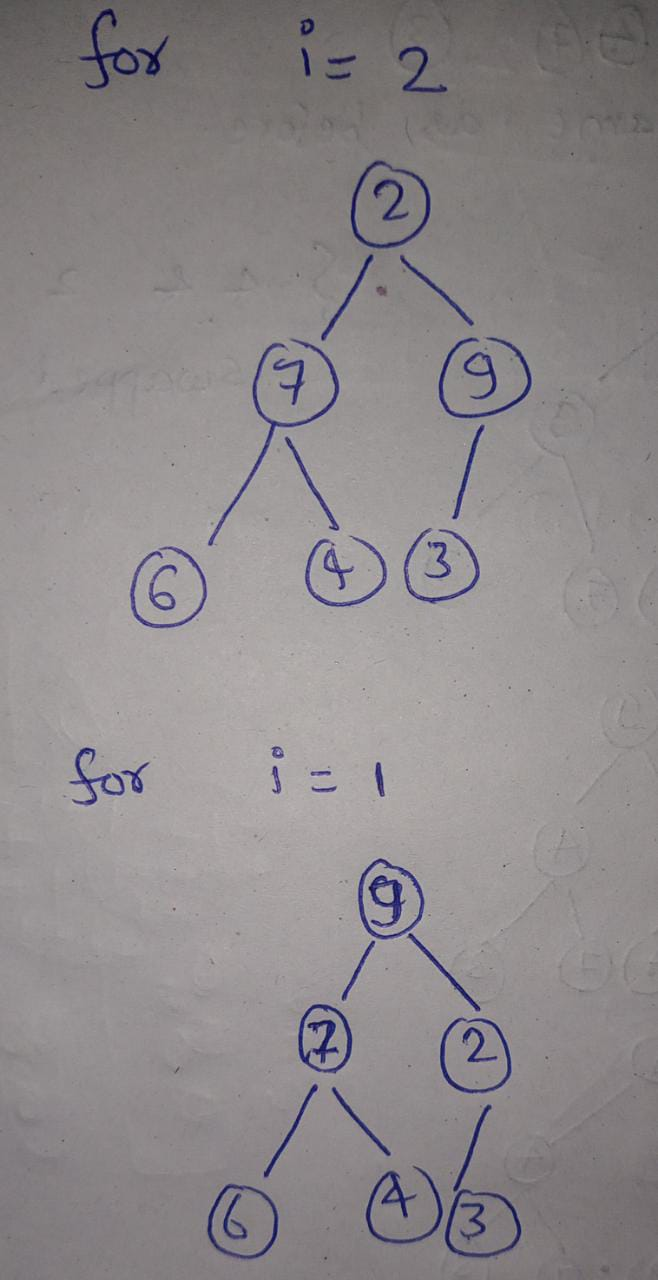 for i = 2
2
7 9
6 4 3
for i = 1
9
7 2
6 4 3